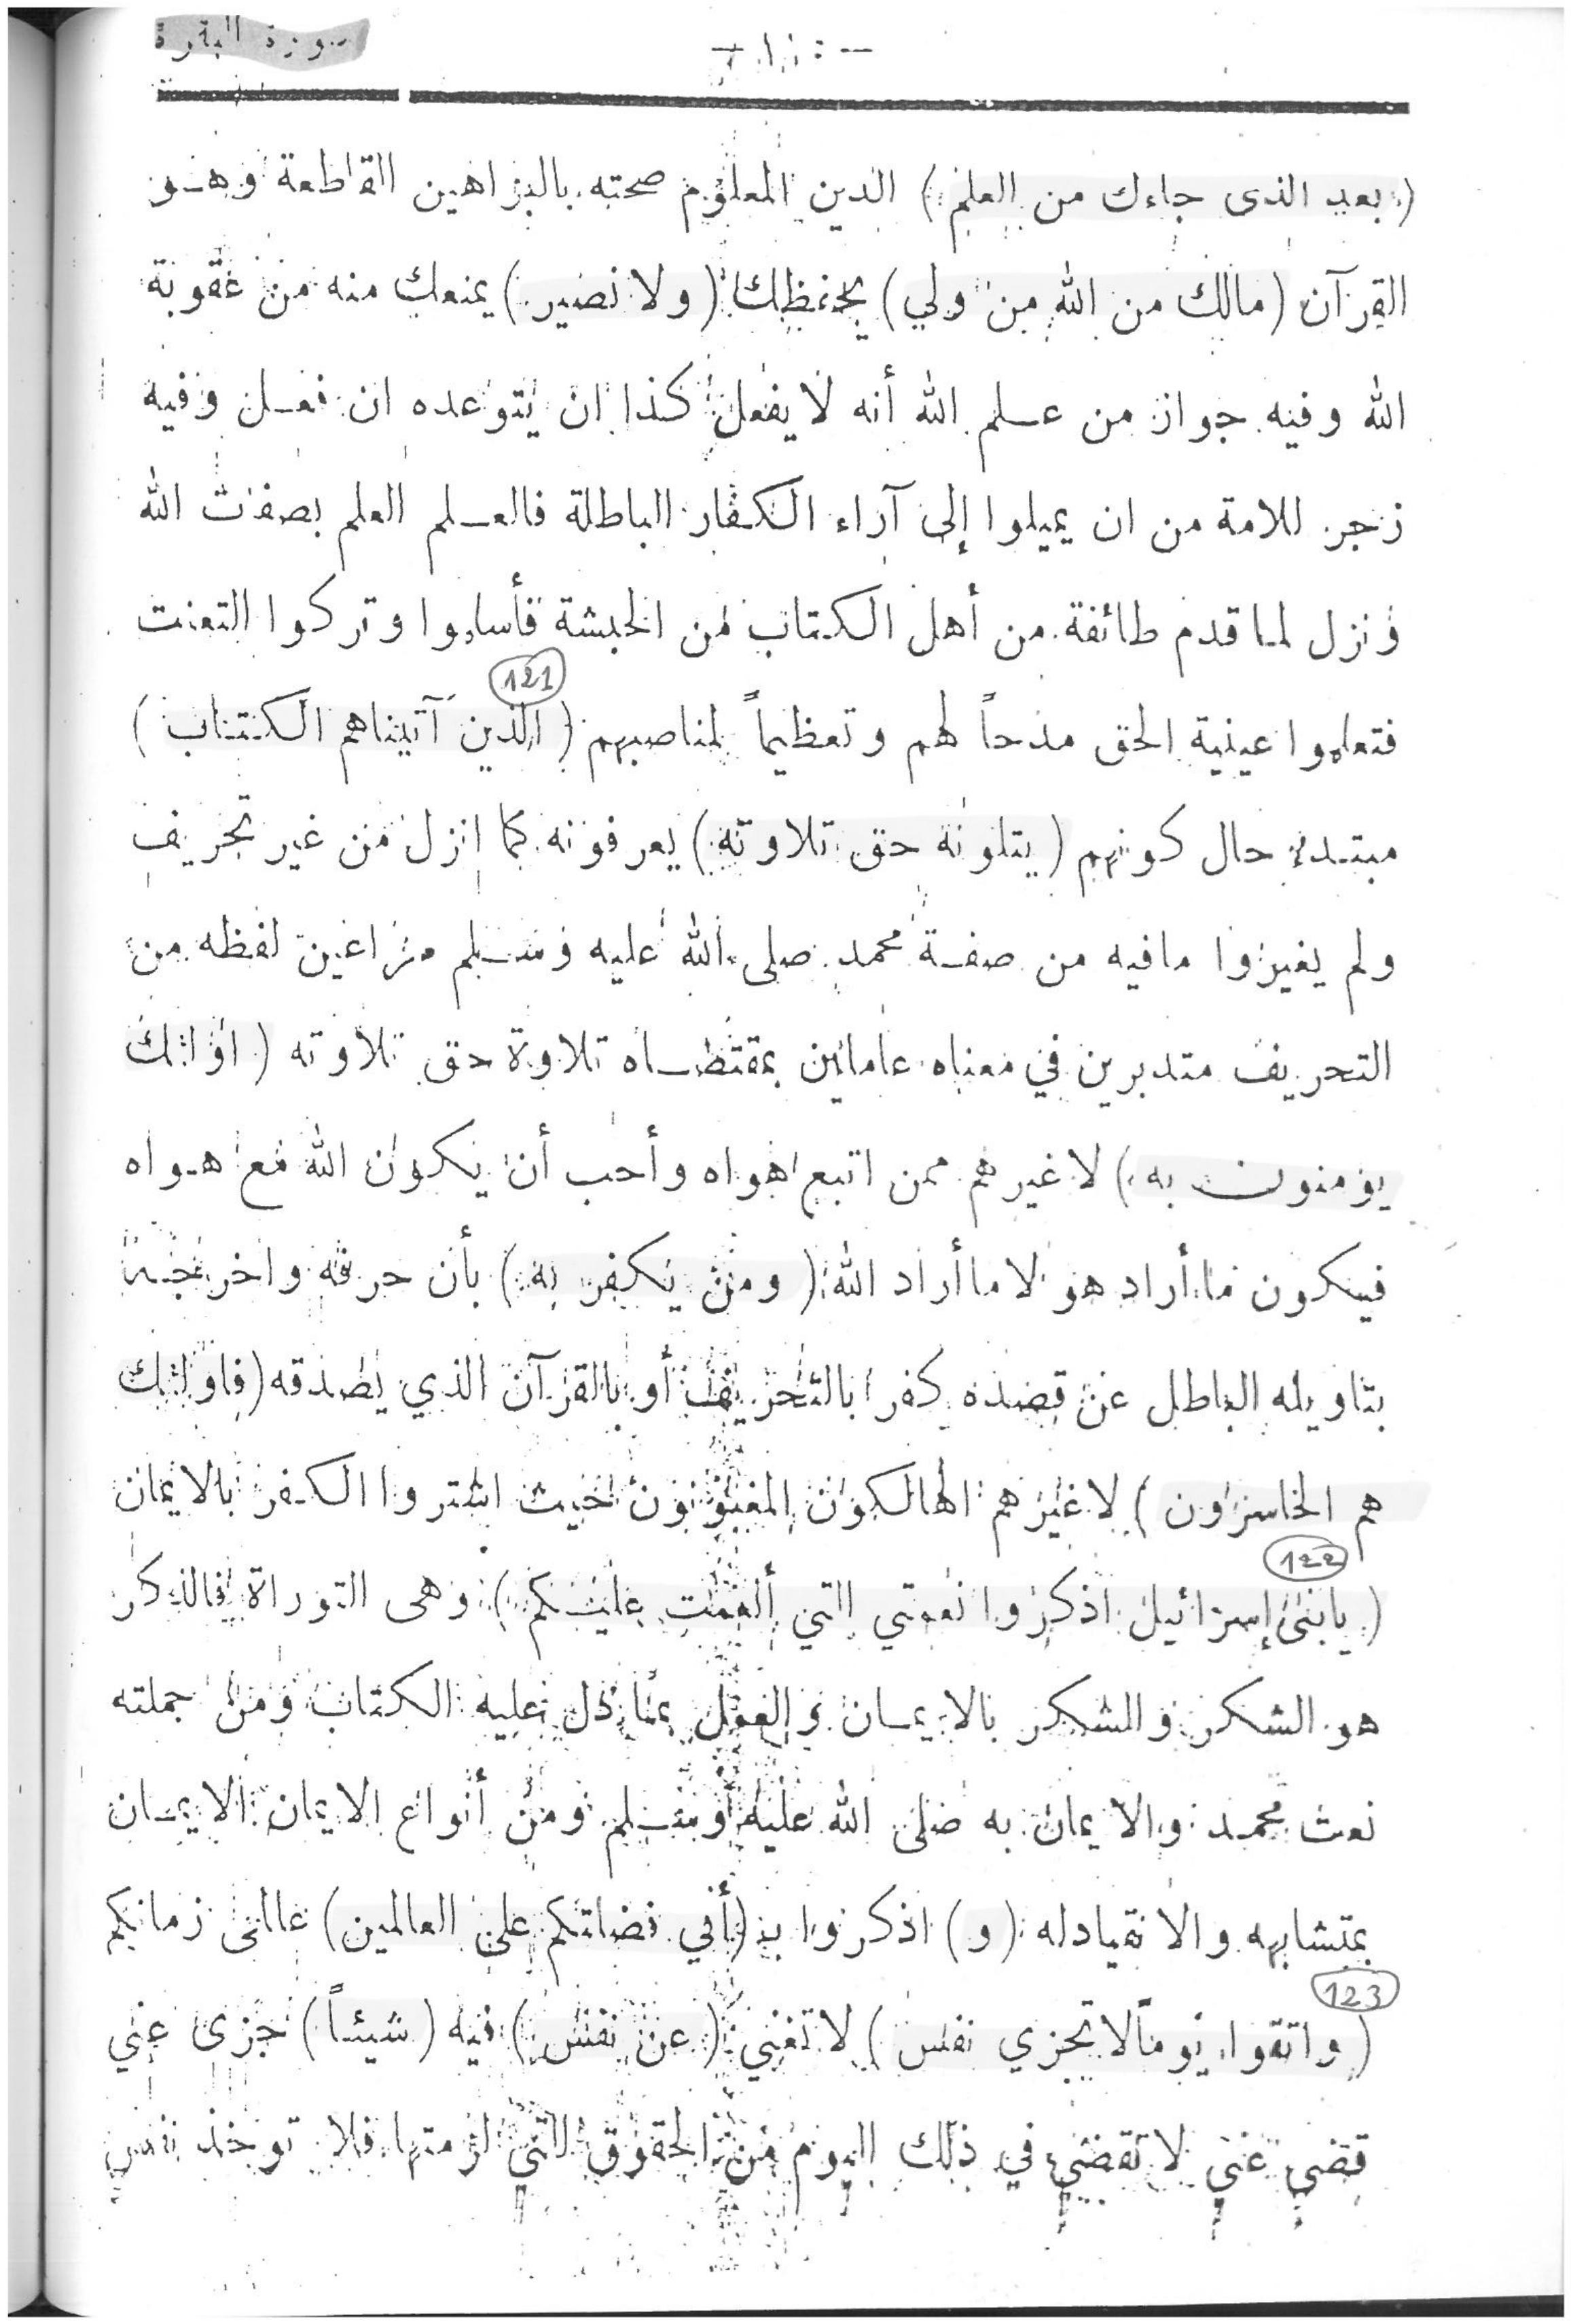 سورة البقرة
(بعد الذى جاءك من العلم) الدين المعلوم صحته بالبراهين القاطعة وهو
القرآن (مالك من الله من ولي) يحفظك (ولا نصير) يمنعك منه من عقوبة
الله وفيه جواز من علم الله أنه لا يفعل كذا ان يتوعده ان فعل وفيه
زجر للامة من ان يميلوا إلى آراء الكفار الباطلة فالعلم العلم بصفات الله
ونزل لما قدم طائفة من أهل الكتاب من الحبشة فأسلموا وتركوا التعنت
121
فتعلموا عينية الحق مدحاً لهم وتعظيماً لمناصبهم (الذين آتيناهم الكتاب)
مبتدء حال كونهم (يتلونه حق تلاوته) يعرفونه كما انزل من غير تحريف
ولم يغيروا مافيه من صفة محمد صلى الله عليه وسلم مراعين لفظه من
التحريف متدبرين في معناه عاملين بمقتضاه تلاوة حق تلاوته (اولئك
يؤمنون به) لا غيرهم ممن اتبع اهواه وأحب أن يكون الله مع هواه
فيكون ما أراد هو لا ما أراد الله (ومن يكفر به) بأن حرفه واخرجه
بتاويله الباطل عن قصده كفرا بالتحريف أو بالقرآن الذي يصدقه (فاولئك
هم الخاسرون) لا غيرهم الهالكون المغبونون حيث اشتروا الكفر بالايمان
122
(يابنى إسرائيل اذكروا نعمتي التي أنعمت عليكم) وهى التوراة فالذكر
هو الشكر والشكر بالايمان والعمل بما دل عليه الكتاب ومن جملته
نعت محمد والايمان به صلى الله عليه وسلم ومن أنواع الايمان الايمان
بمتشابهه والانقيادله (و) اذكروا (أني فضلتكم على العالمين) عالمى زمانكم
123
(واتقوا يوماً لا تجزي نفس) لا تغني (عن نفس) فيه (شيئاً) جزى عني
قضى عني لا تقضي في ذلك اليوم من الحقوق التي لزمتها فلا توخذ نفس